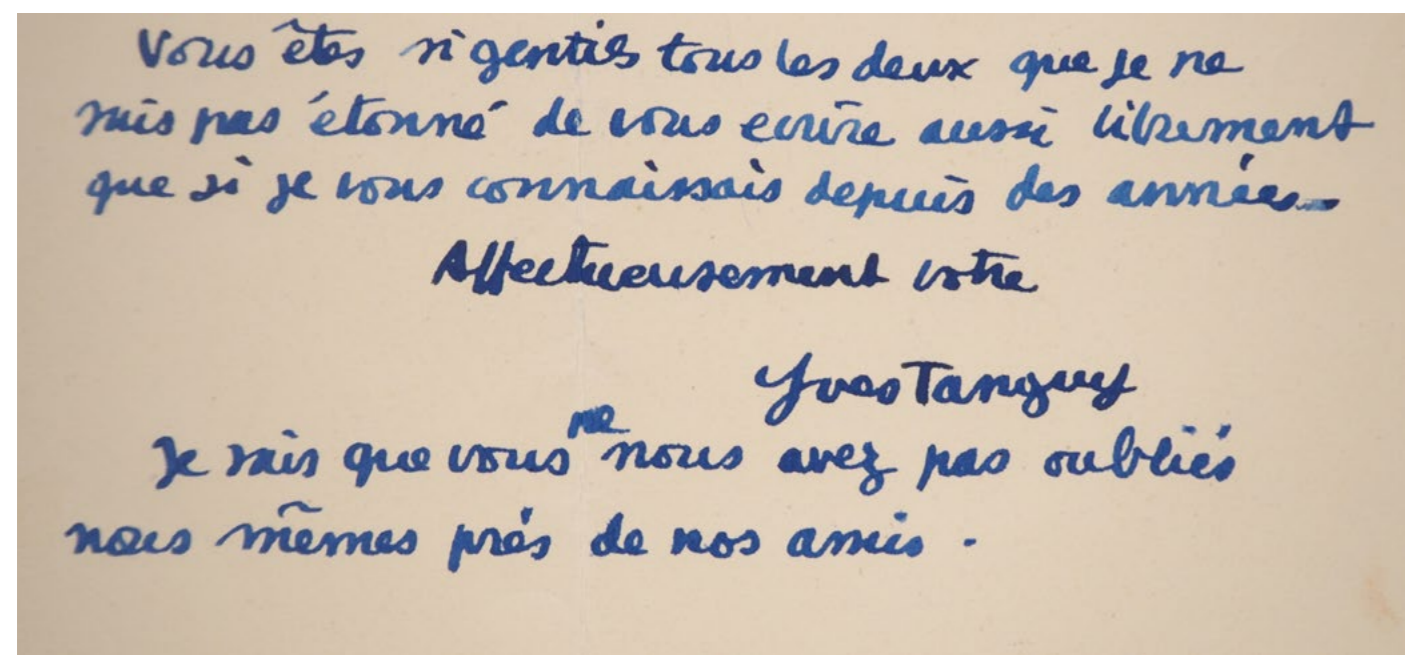 Vous êtes si gentils tous les deux que je ne
suis pas étonné de vous ecrire aussi librement
que si je vous connaissais depuis des années_
Affectueusement votre
Yves Tanguy
Je sais que vous ne nous avez pas oubliés
nous mêmes prés de nos amis.